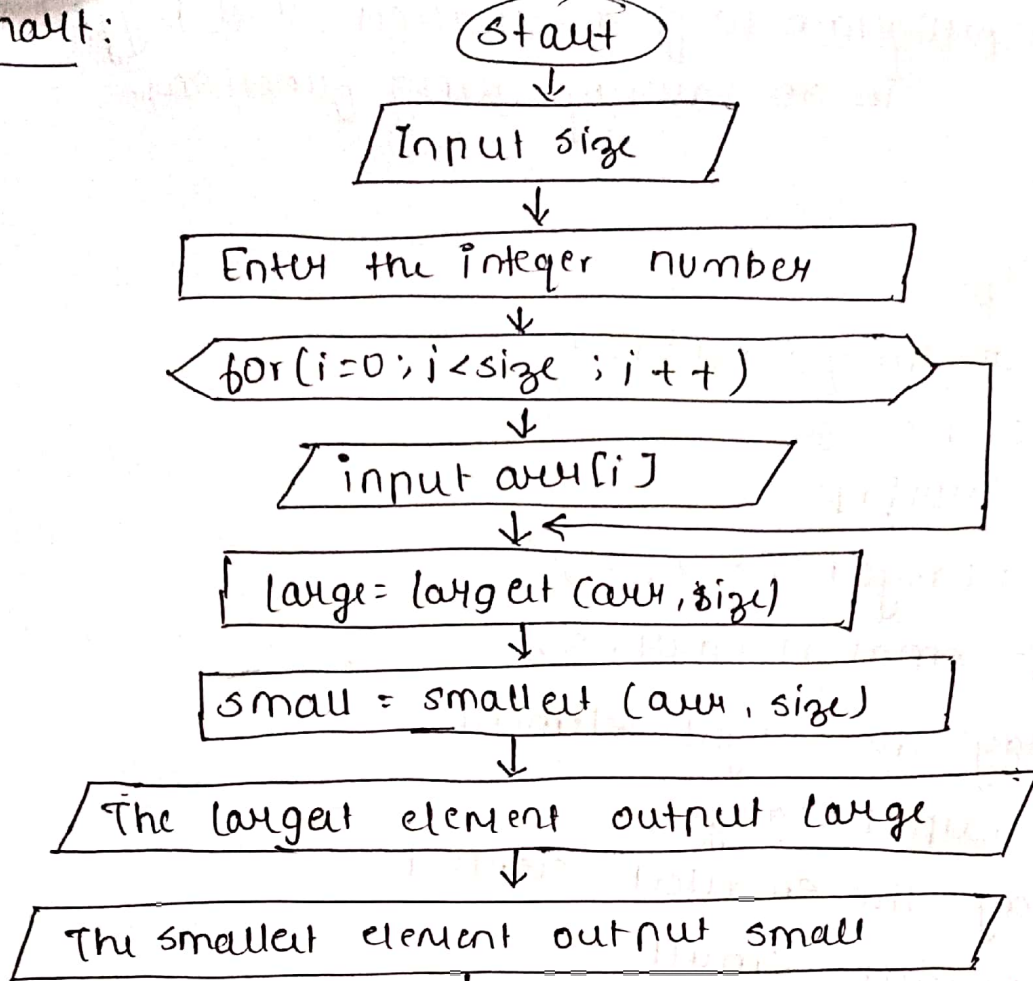 hart:
Start
Input size
Enter the integer number
for(i=0; i<size; i++)
input arr[i]
large = largest (arr, size)
small = smallest (arr, size)
The largest element output large
The smallest element output small